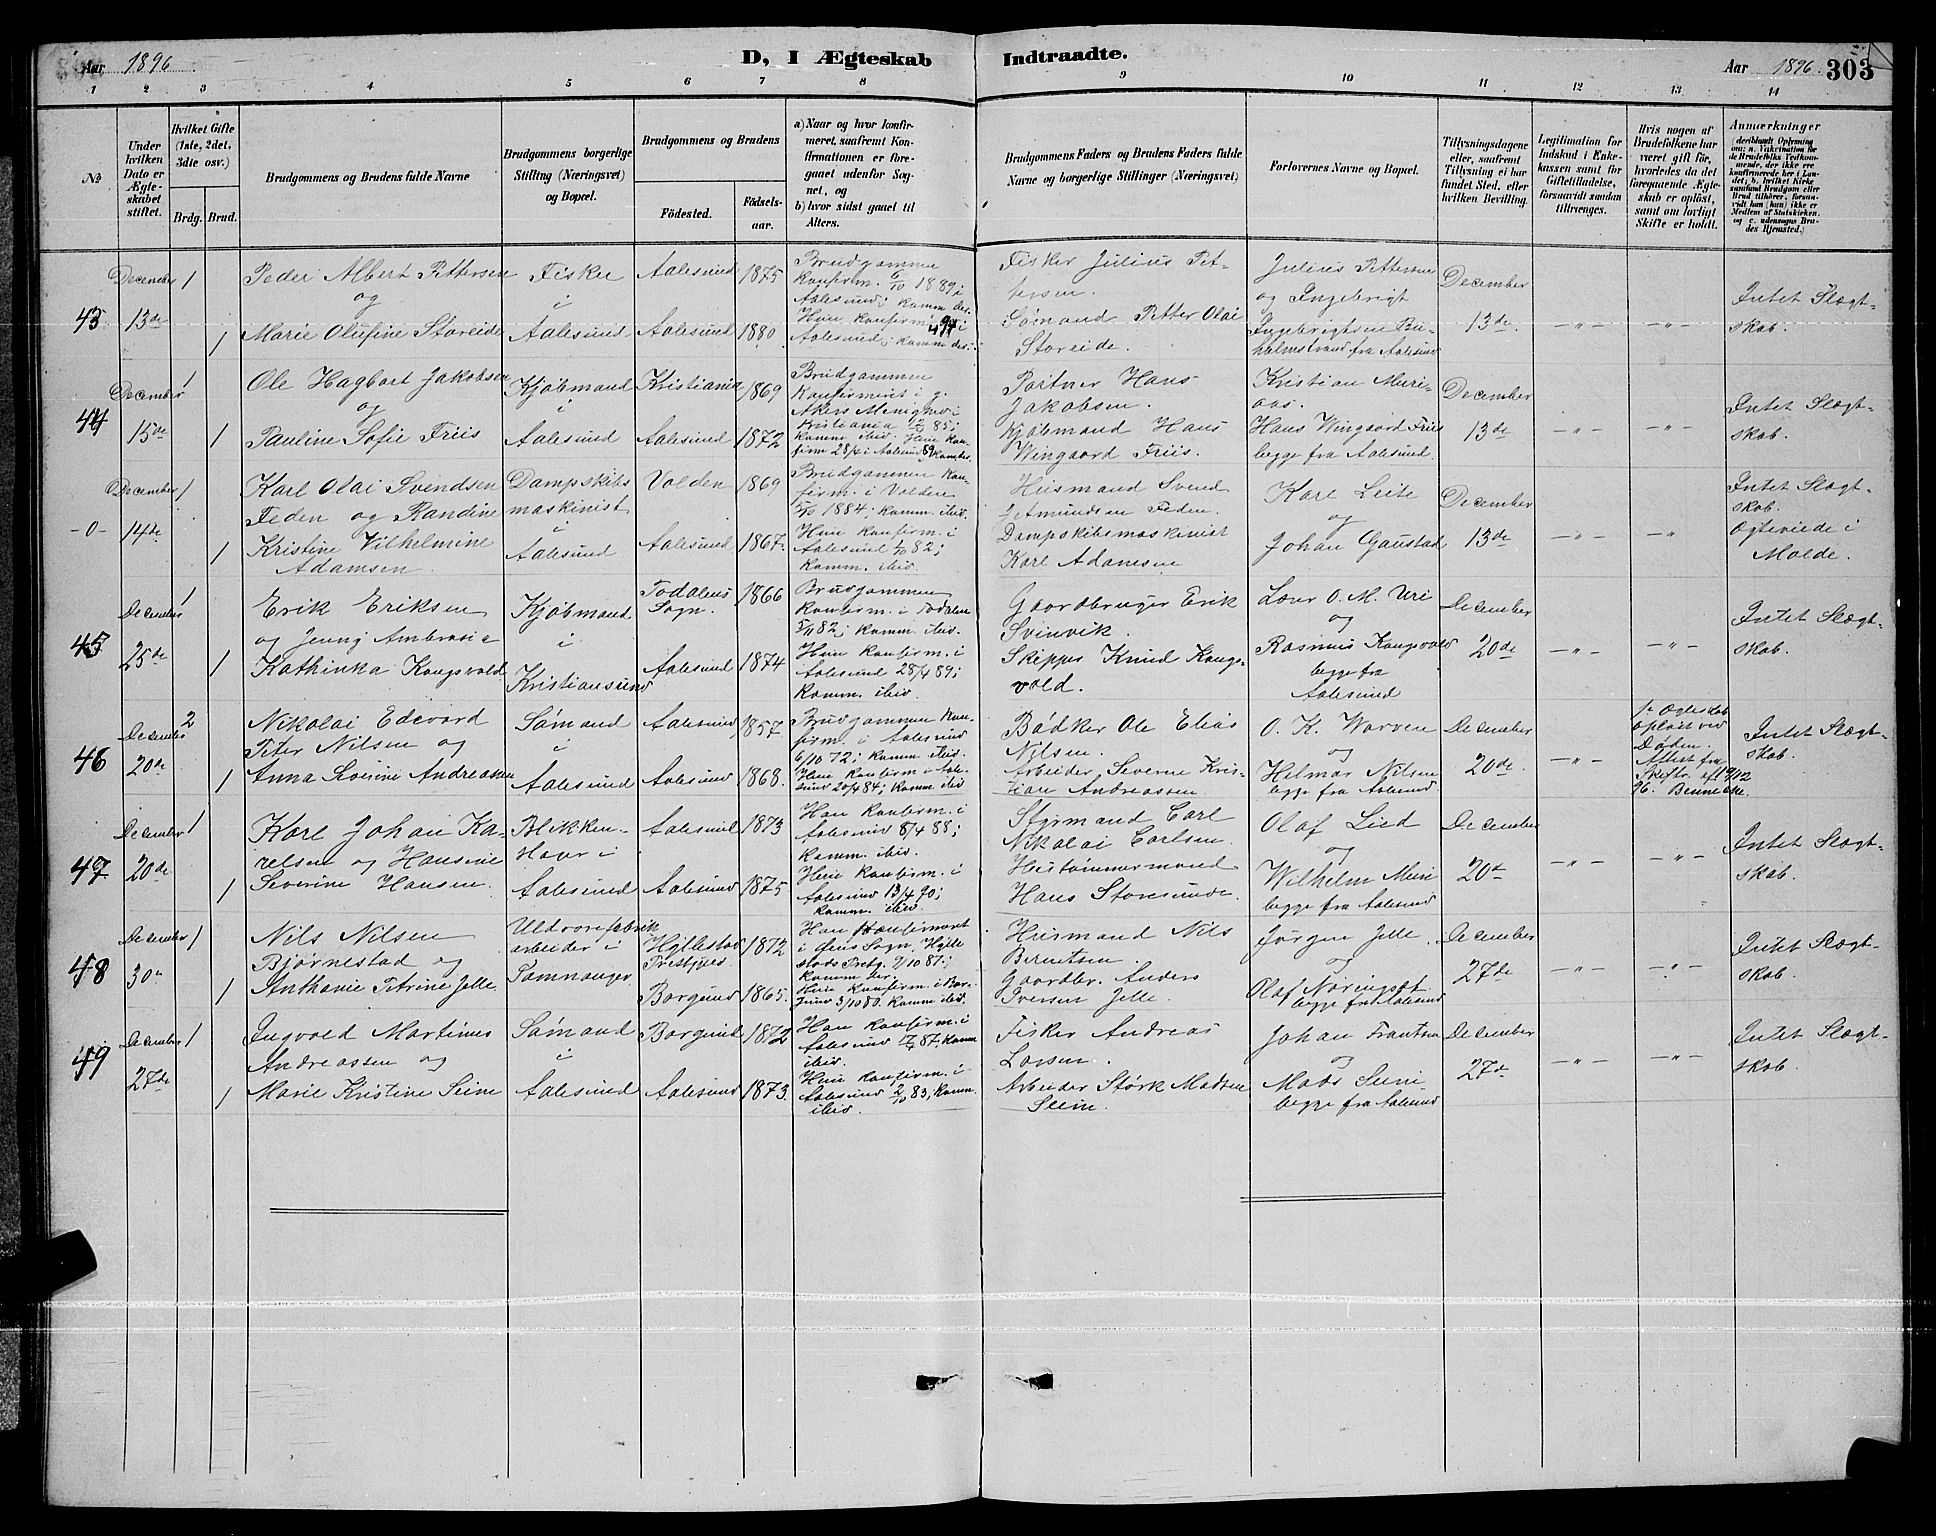 Aar 1896
D, I Ægteskab Indtraadte.
Aar 1896. 303
1 2 3 4 5 6 7 8 9 10 11 12 13 14
№
Under hvilken Dato er Ægteskabet stiftet.
Hvilket Gifte (1ste, 2det, 3die osv.)
Brdg. Brud.
Brudgommens og Brudens fulde Navne
Brudgommens borgerlige Stilling (Næringsvei) og Bopæl.
Brudgommens og Brudens
Fødested. Fødselsaar.
a) Naar og hvor konfirmeret, saafremt Konfirmationen er foregaaet udenfor Sognet, og
b) hvor sidst gaaet til Alters.
Brudgommens Faders og Brudens Faders fulde Navne og borgerlige Stillinger (Næringsvei)
Forlovernes Navne og Bopæl.
Tillysningsdagene eller, saafremt Tillysning ei har fundet Sted, efter hvilken Bevilling.
Legitimation for Indskud i Enkekassen samt for Giftetilladelse, forsaavidt saadan tiltrænges.
Hvis nogen af Brudefolkene har været gift før, hvorledes da det foregaaende Ægteskab er opløst, samt om lovligt Skifte er holdt.
Anmærkninger (deriblandt Oplysning om: a. Vaksination for de Brudefolks Vedkommende, der ikke ere konfirmerede her i Landet; b. hvilket Kirkesamfund Brudgom eller Brud tilhører, forsaavidt han (hun) ikke er Medlem af Statskirken, og c. udensogns Brudes Hjemsted.)
43 December 13de 1 1
Peder Albert Pettersen
og
Marie Olufine Storeide
Fisker
i
Aalesund
Aalesund 1875
Aalesund 1880
Brudgommen
konfirm. 6/10 1889 i
Aalesund; komm. der.
Hun konfirm. i
Aalesund; komm. der.
Fisker Julius Pettersen.
Sømand Petter Olai
Storeide.
Julius Pettersen
og Ingebrigt
Ingebrigtsen
fra Aalesund
December
13de.
-"- -"-
Intet Slægtskab.
44 December 15de 1 1
Ole Hagbart Jakobsen
og
Pauline Sofie Friis
Kjøbmand
i
Aalesund
Kristiania 1869
Aalesund 1872
Brudgommen
konfirmeret i g.
Akers Menighed i
Kristiania 85;
komm. ibid. Hun konfirm
28/4 i Aalesund 89 kom. der.
Portner Hans
Jakobsen.
Kjøbmand Hans
Wingaard Friis.
Kristian Muriaas.
Hans Wingaard Friis
begge fra Aalesund.
December
13de
-"- -"-
Intet Slægtskab.
-0- December 14de 1 1
Karl Olai Svendsen
Feden og Randine
Kristine Vilhelmine
Adamsen
Dampskibs
maskinist
i
Aalesund
Volden 1869
Aalesund 1867.
Brudgommen konfirm.
i Volden
5/10 1884; komm. ibid.
Hun konfirm. i
Aalesund 1/10 82;
komm. ibid.
Husmand Svend
Amundsen Feden.
Dampskibsmaskinist
Karl Adamsen
Karl Leite
og
Johan Gaustad
December
13de
-"- -"
Intet Slægtskab.
Ogteviede i
Molde.
45 December 25de 1 1
Erik Eriksen
og Jenny Ambrosia
Kathinka Kongsvold
Kjøbmand
i
Kristiansund
Todalens
Sogn. 1866
Aalesund 1874
Brudgommen
konfirm. i Todalen
5/11 82; komm. ibid.
Hun konfirm. i
Aalesund 28/4 89;
komm. ibid.
Gaardbruger Erik
Svinvik.
Skipper Knud Kongsvold.
Laur O. M. Uri
og
Rasmus Kongsvold
begge fra
Aalesund
December
20de
-"- -"-
Intet Slægtskab.
46 December 20de 2 1
Nikolai Edevard
Peter Nilsen og
Anna Severine Andreassen
Sømand
i
Aalesund
Aalesund 1857
Aalesund 1868.
Brudgommen konfirm.
i Aalesund
6/10 72; komm. ibid.
Hun konfirm i Aalesund
20/4 84; komm. ibid
Bødker Ole Elias
Nilsen.
Arbeider Severin Kristian
Andreassen.
O. K. Warven
og
Helmar Nilsen
begge fra Aalesund
December
20de
-"-
1e Ægteskab
opløst ved
Døden.
Attest fra
Skiftr. af 19/12
96.
Intet Slægtskab.
47 December 20de 1 1
Karl Johan Karelsen
og Hansine
Severine Hansen.
Blikkenslager i
Aalesund
Aalesund 1873
Aalesund 1875
Han konfirm. i
Aalesund 8/4 88;
komm. ibid.
Hun konfirm. i
Aalesund 13/4 90;
komm. ibid.
Styrmand Carl
Nikolai Carlsen.
Hustømmermand
Hans Storesunde
Olaf Lied
og
Wilhelm Muri
begge fra Aalesund
December
20de
-"- -"-
Intet Slægtskab.
48 December 30e 1 1
Nils Nilsen
Bjørnestad og
Anthonie Petrine Jelle
Uldvarefabrik
arbeider i
Samnanger
Hyllestad
Prestgjeld 1872
Borgund 1865.
Han konfirmeret
i Sogn, Hyllestads
Prstg. 9/10 87;
komm. her.
Hun konfirm. i Borgund
3/10 80. komm. ibid.
Husmand Nils
Berntsen.
Gaardbr. Anders
Iversen Jelle.
Jørgen Jelle
og
Olaf Nøringset
begge fra Aalesund
December
27de
-"- -"-
Intet Slægtskab.
49 December 27de 1 1
Ingvald Martinus
Andreassen og
Marie Kristine Seine
Sømand
i
Aalesund
Borgund 1872
Aalesund 1873.
Han konfirm. i
Aalesund 17/4 87. komm
ibid.
Hun konfirm. i
Aalesund 2/10 83; komm.
ibid.
Fisker Andreas
Larsen.
Arbeider Størk Madsen
Seim.
Johan Frantsen
og
Mads Seim
begge fra Aalesund
December
27de
-"- -"-
Intet Slægtskab.